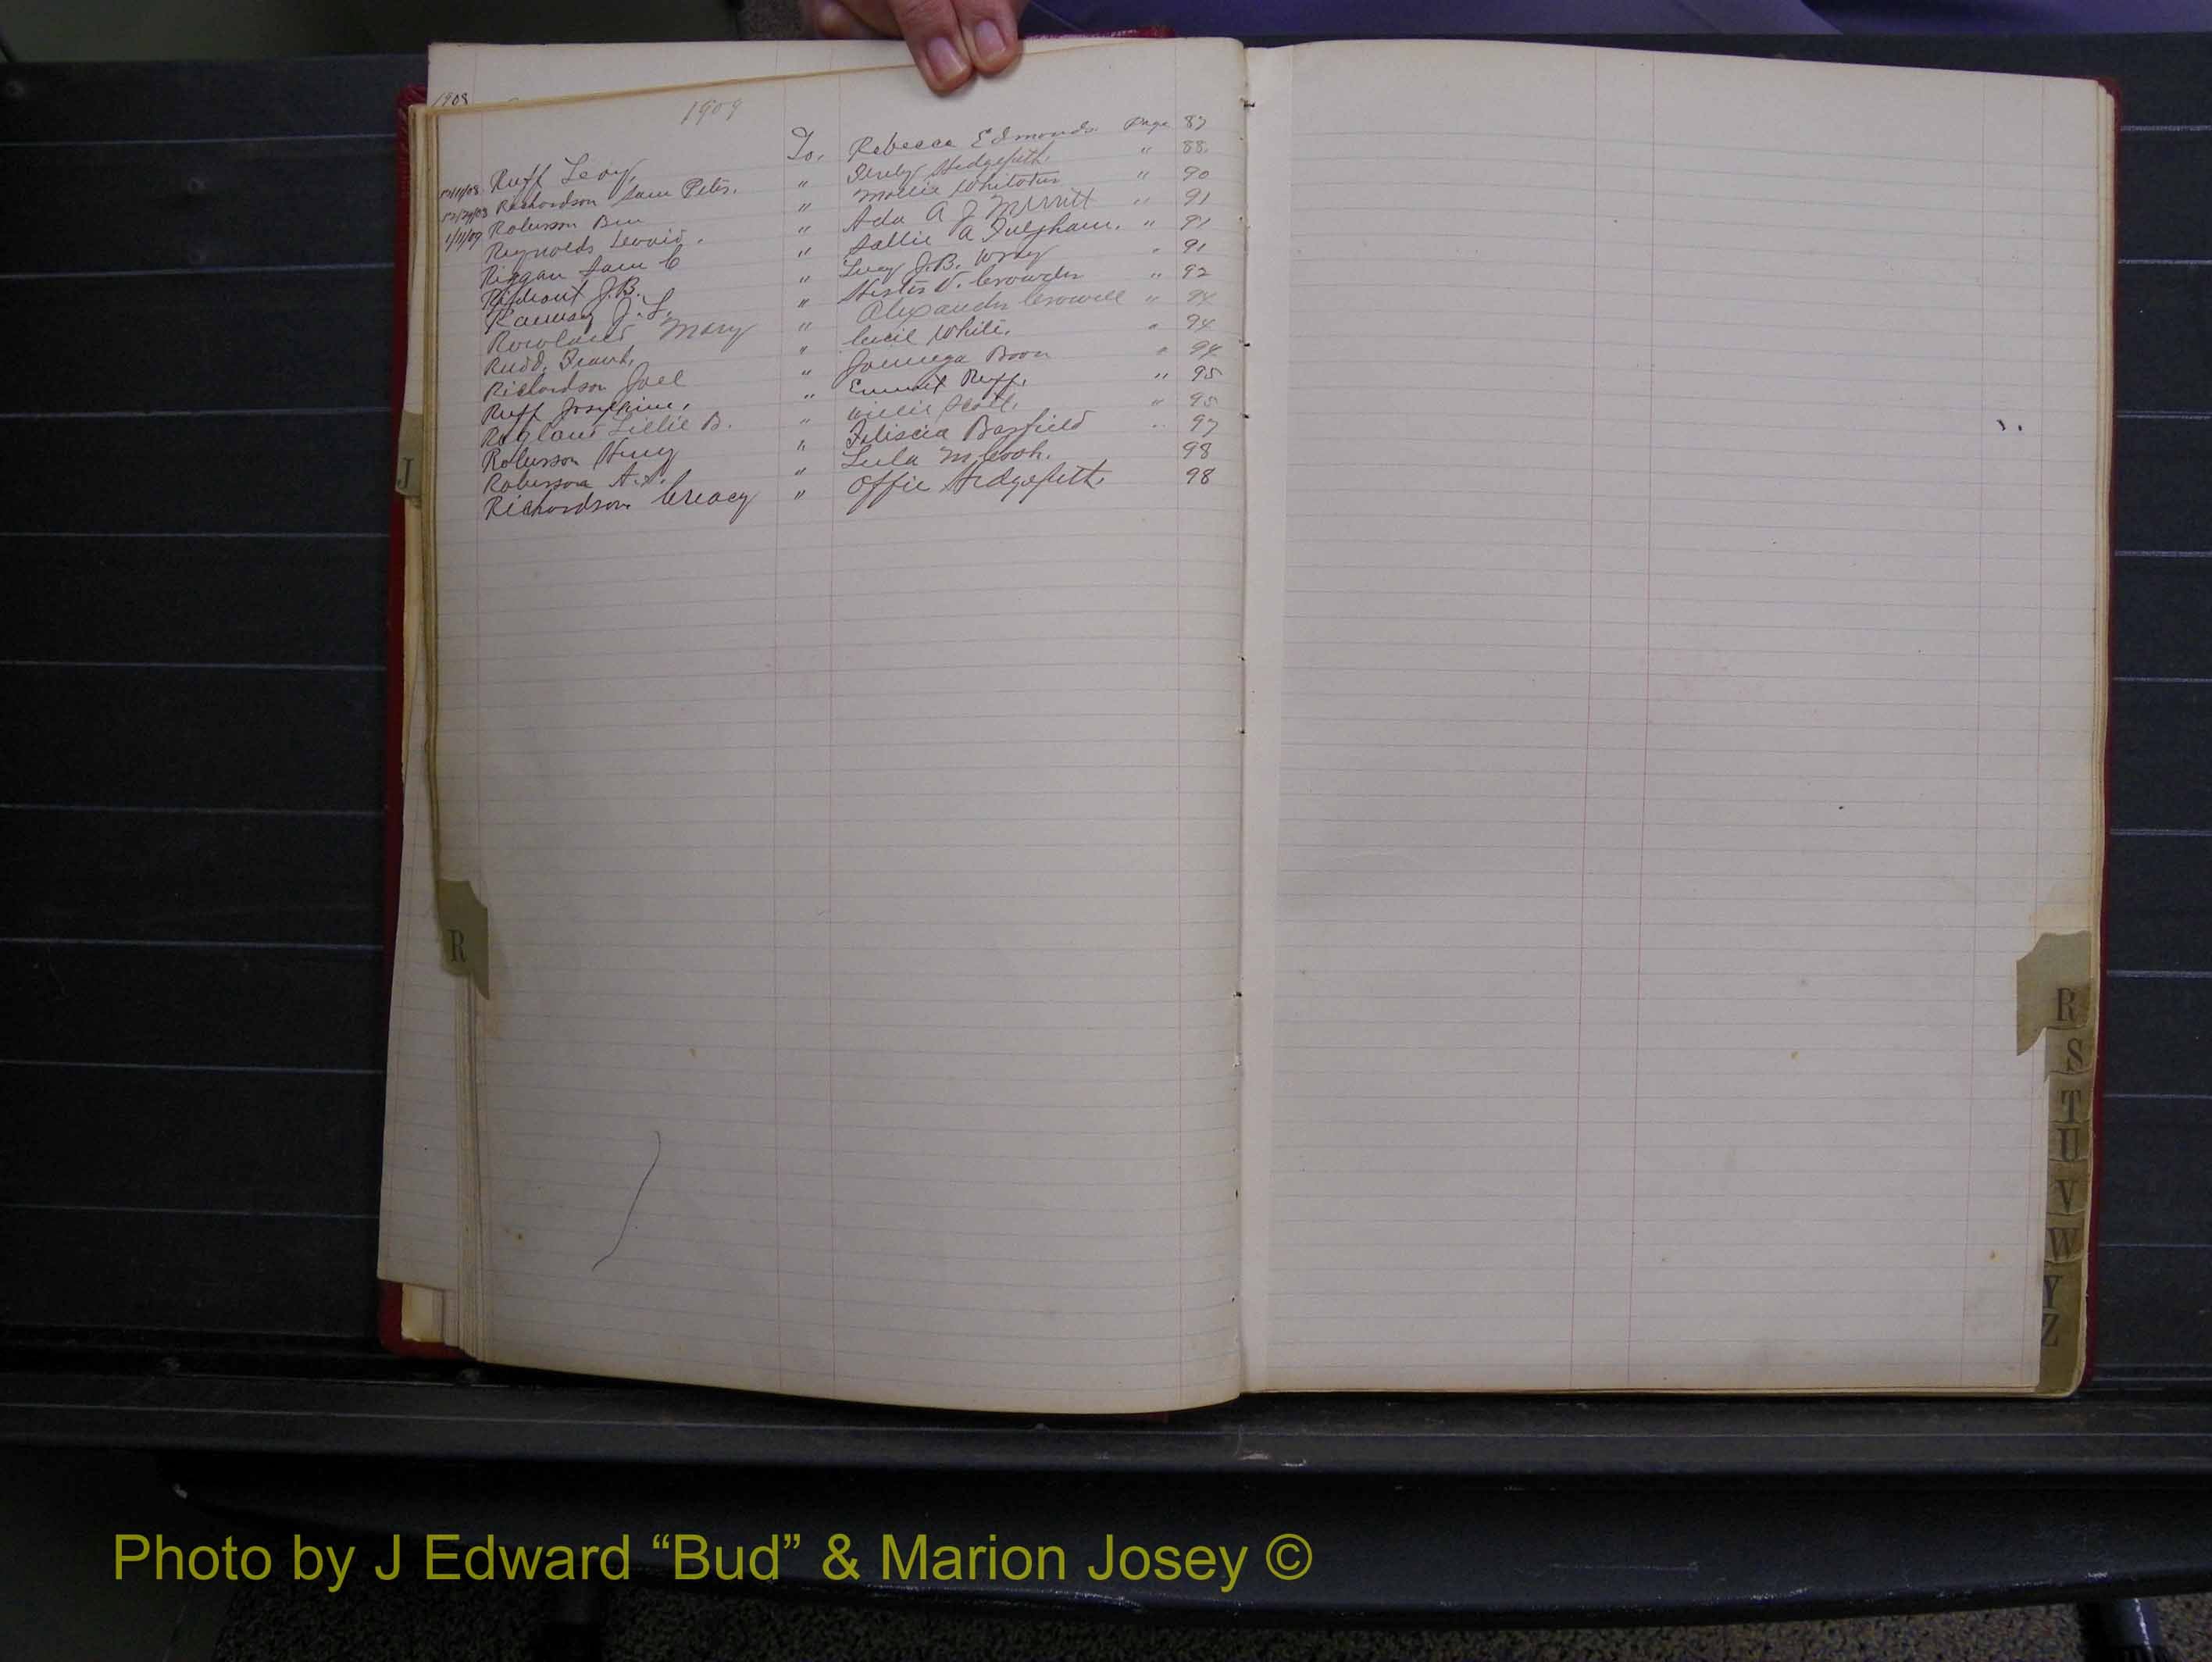 1908
1909
12/11/08 Ruff Levy, To, Rebecca Edmonds Page 87
12/24/08 Richardson Sam Peter. " Hedgepeth " 88.
1/11/09 Robinson Ben " Mollie Whitaker " 90
Reynolds " Ada A J Merritt " 91
Riggan Sam C " Sallie A Fulgham. " 91
Rideout J.B. " Lucy J.B. Wray " 91
Ramsay J. L. " Hester V. Crowder " 92
Rowland Mary " Alexander Crowell " 94
Rudd, Frank, " Cecil White, " 94
Richardson Joel " Boon " 94
Ruff Josephine, " Emmet Ruff, " 95
Ragland Lillie B. " Willie Scott, " 95
Robinson Henry " Feliscia Barfield " 97
Robinson A.A. " Lula M Cook. 98
Richardson Creacy " Offie Hedgepeth, 98
J
R
R
S
T
U
V
W
Y
Z
Photo by J Edward “Bud” & Marion Josey ©